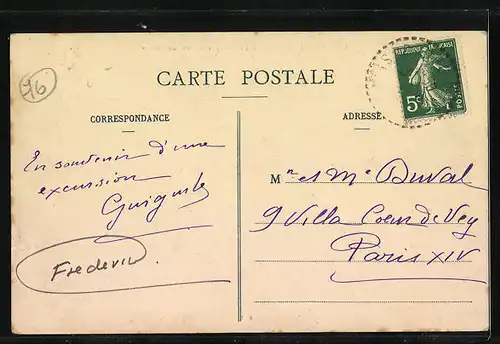 76
CARTE POSTALE
CORRESPONDANCE
ADRESSE
REPUBLIQUE FRANÇAISE
5c
POSTES
En souvenir d'une
excursion
Frederic
Mr et Me Duval
9 Villa Coeur de Vey
Paris XIV